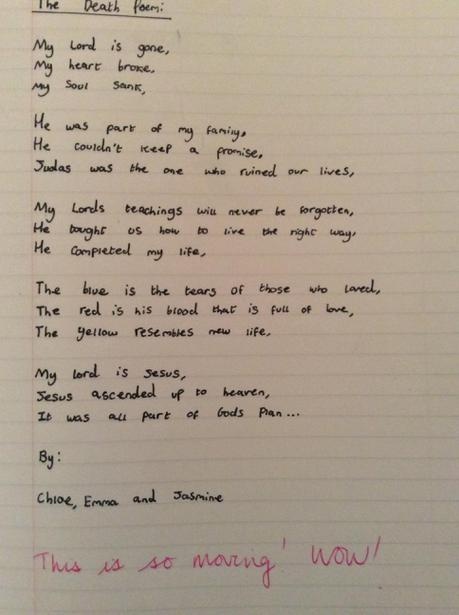 The Death Poem:
My Lord is gone,
My heart broke,
My Soul Sank,
He was part of my family,
He couldn't keep a promise,
Judas was the one who ruined our lives,
My Lords teachings will never be forgotten,
He tought us how to live the right way,
He Completed my life,
The blue is the tears of those who loved,
The red is his blood that is full of love,
The yellow resembles new life,
My lord is Jesus,
Jesus ascended up to heaven,
It was all part of Gods Plan...
By:
Chloe, Emma and Jasmine
This is so moving! Wow!